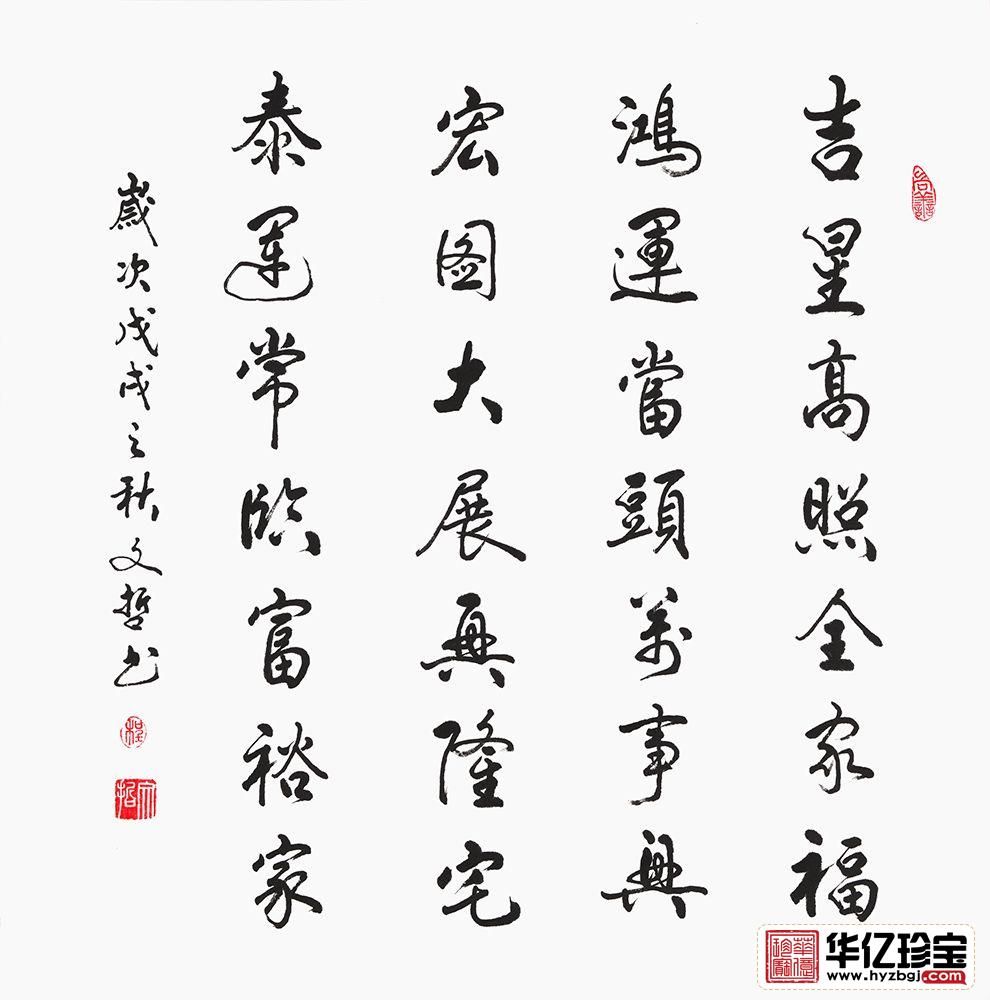 吉星高照全家福
鴻運當頭萬事興
宏图大展興隆宅
泰運常臨富裕家
歲次戊戌之秋文哲书
文哲
华亿珍宝
www.hyzbgj.com